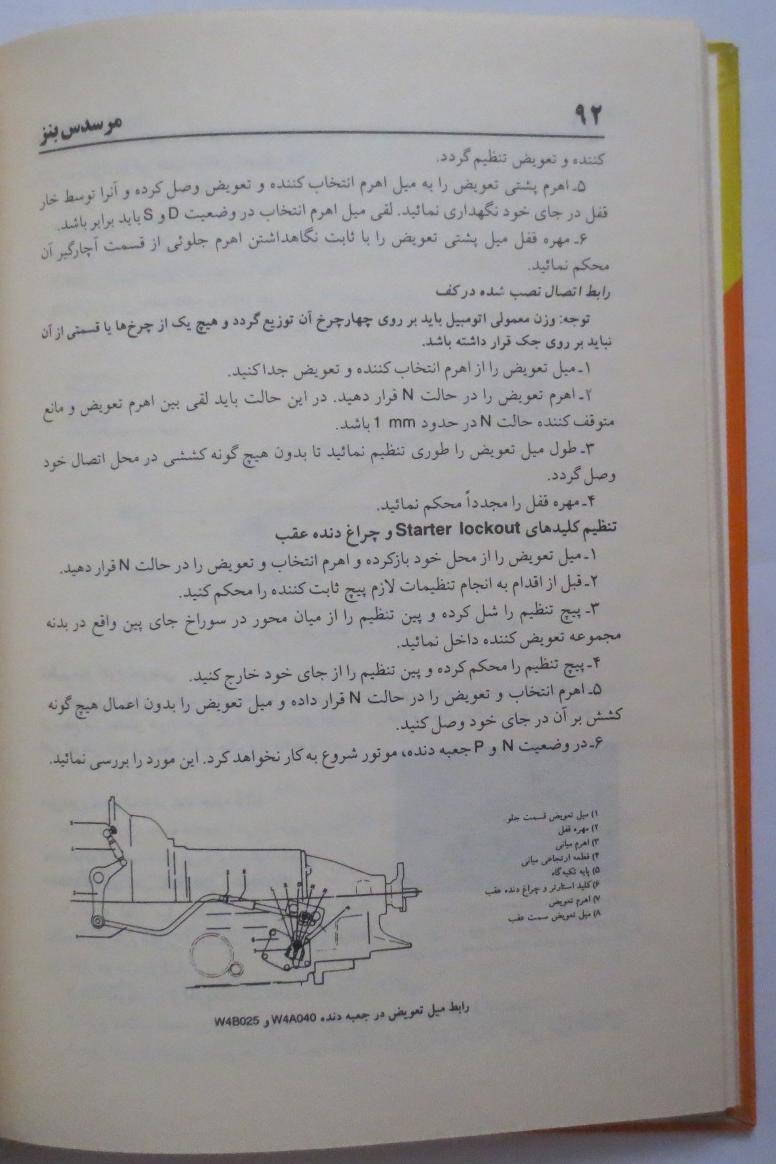 ۹۲
مرسدس بنز
کننده و تعویض تنظیم گردد.
۵ـ اهرم پشتی تعویض را به میل اهرم انتخاب کننده و تعویض وصل کرده و آنرا توسط خار
قفل در جای خود نگهداری نمائید. لقی میل اهرم انتخاب در وضعیت D و S باید برابر باشد.
۶ـ مهره قفل میل پشتی تعویض را با ثابت نگاهداشتن اهرم جلوئی از قسمت آچارگیر آن
محکم نمائید.
رابط اتصال نصب شده در کف
توجه: وزن معمولی اتومبیل باید بر روی چهارچرخ آن توزیع گردد و هیچ یک از چرخ‌ها یا قسمتی از آن
نباید بر روی جک قرار داشته باشد.
۱ـ میل تعویض را از اهرم انتخاب کننده و تعویض جدا کنید.
۲ـ اهرم تعویض را در حالت N قرار دهید. در این حالت باید لقی بین اهرم تعویض و مانع
متوقف کننده حالت N در حدود 1 mm باشد.
۳ـ طول میل تعویض را طوری تنظیم نمائید تا بدون هیچ گونه کششی در محل اتصال خود
وصل گردد.
۴ـ مهره قفل را مجدداً محکم نمائید.
تنظیم کلیدهای Starter lockout و چراغ دنده عقب
۱ـ میل تعویض را از محل خود بازکرده و اهرم انتخاب و تعویض را در حالت N قرار دهید.
۲ـ قبل از اقدام به انجام تنظیمات لازم پیچ ثابت کننده را محکم کنید.
۳ـ پیچ تنظیم را شل کرده و پین تنظیم را از میان محور در سوراخ جای پین واقع در بدنه
مجموعه تعویض کننده داخل نمائید.
۴ـ پیچ تنظیم را محکم کرده و پین تنظیم را از جای خود خارج کنید.
۵ـ اهرم انتخاب و تعویض را در حالت N قرار داده و میل تعویض را بدون اعمال هیچ گونه
کشش بر آن در جای خود وصل کنید.
۶ـ در وضعیت N و P جعبه دنده، موتور شروع به کار نخواهد کرد. این مورد را بررسی نمائید.
۱) میل تعویض قسمت جلو
۲) مهره قفل
۳) اهرم میانی
۴) قطعه ارتجاعی میانی
۵) پایه تکیه‌گاه
۶) کلید استارتر و چراغ دنده عقب
۷) اهرم تعویض
۸) میل تعویض سمت عقب
رابط میل تعویض در جعبه دنده W4A040 و W4B025